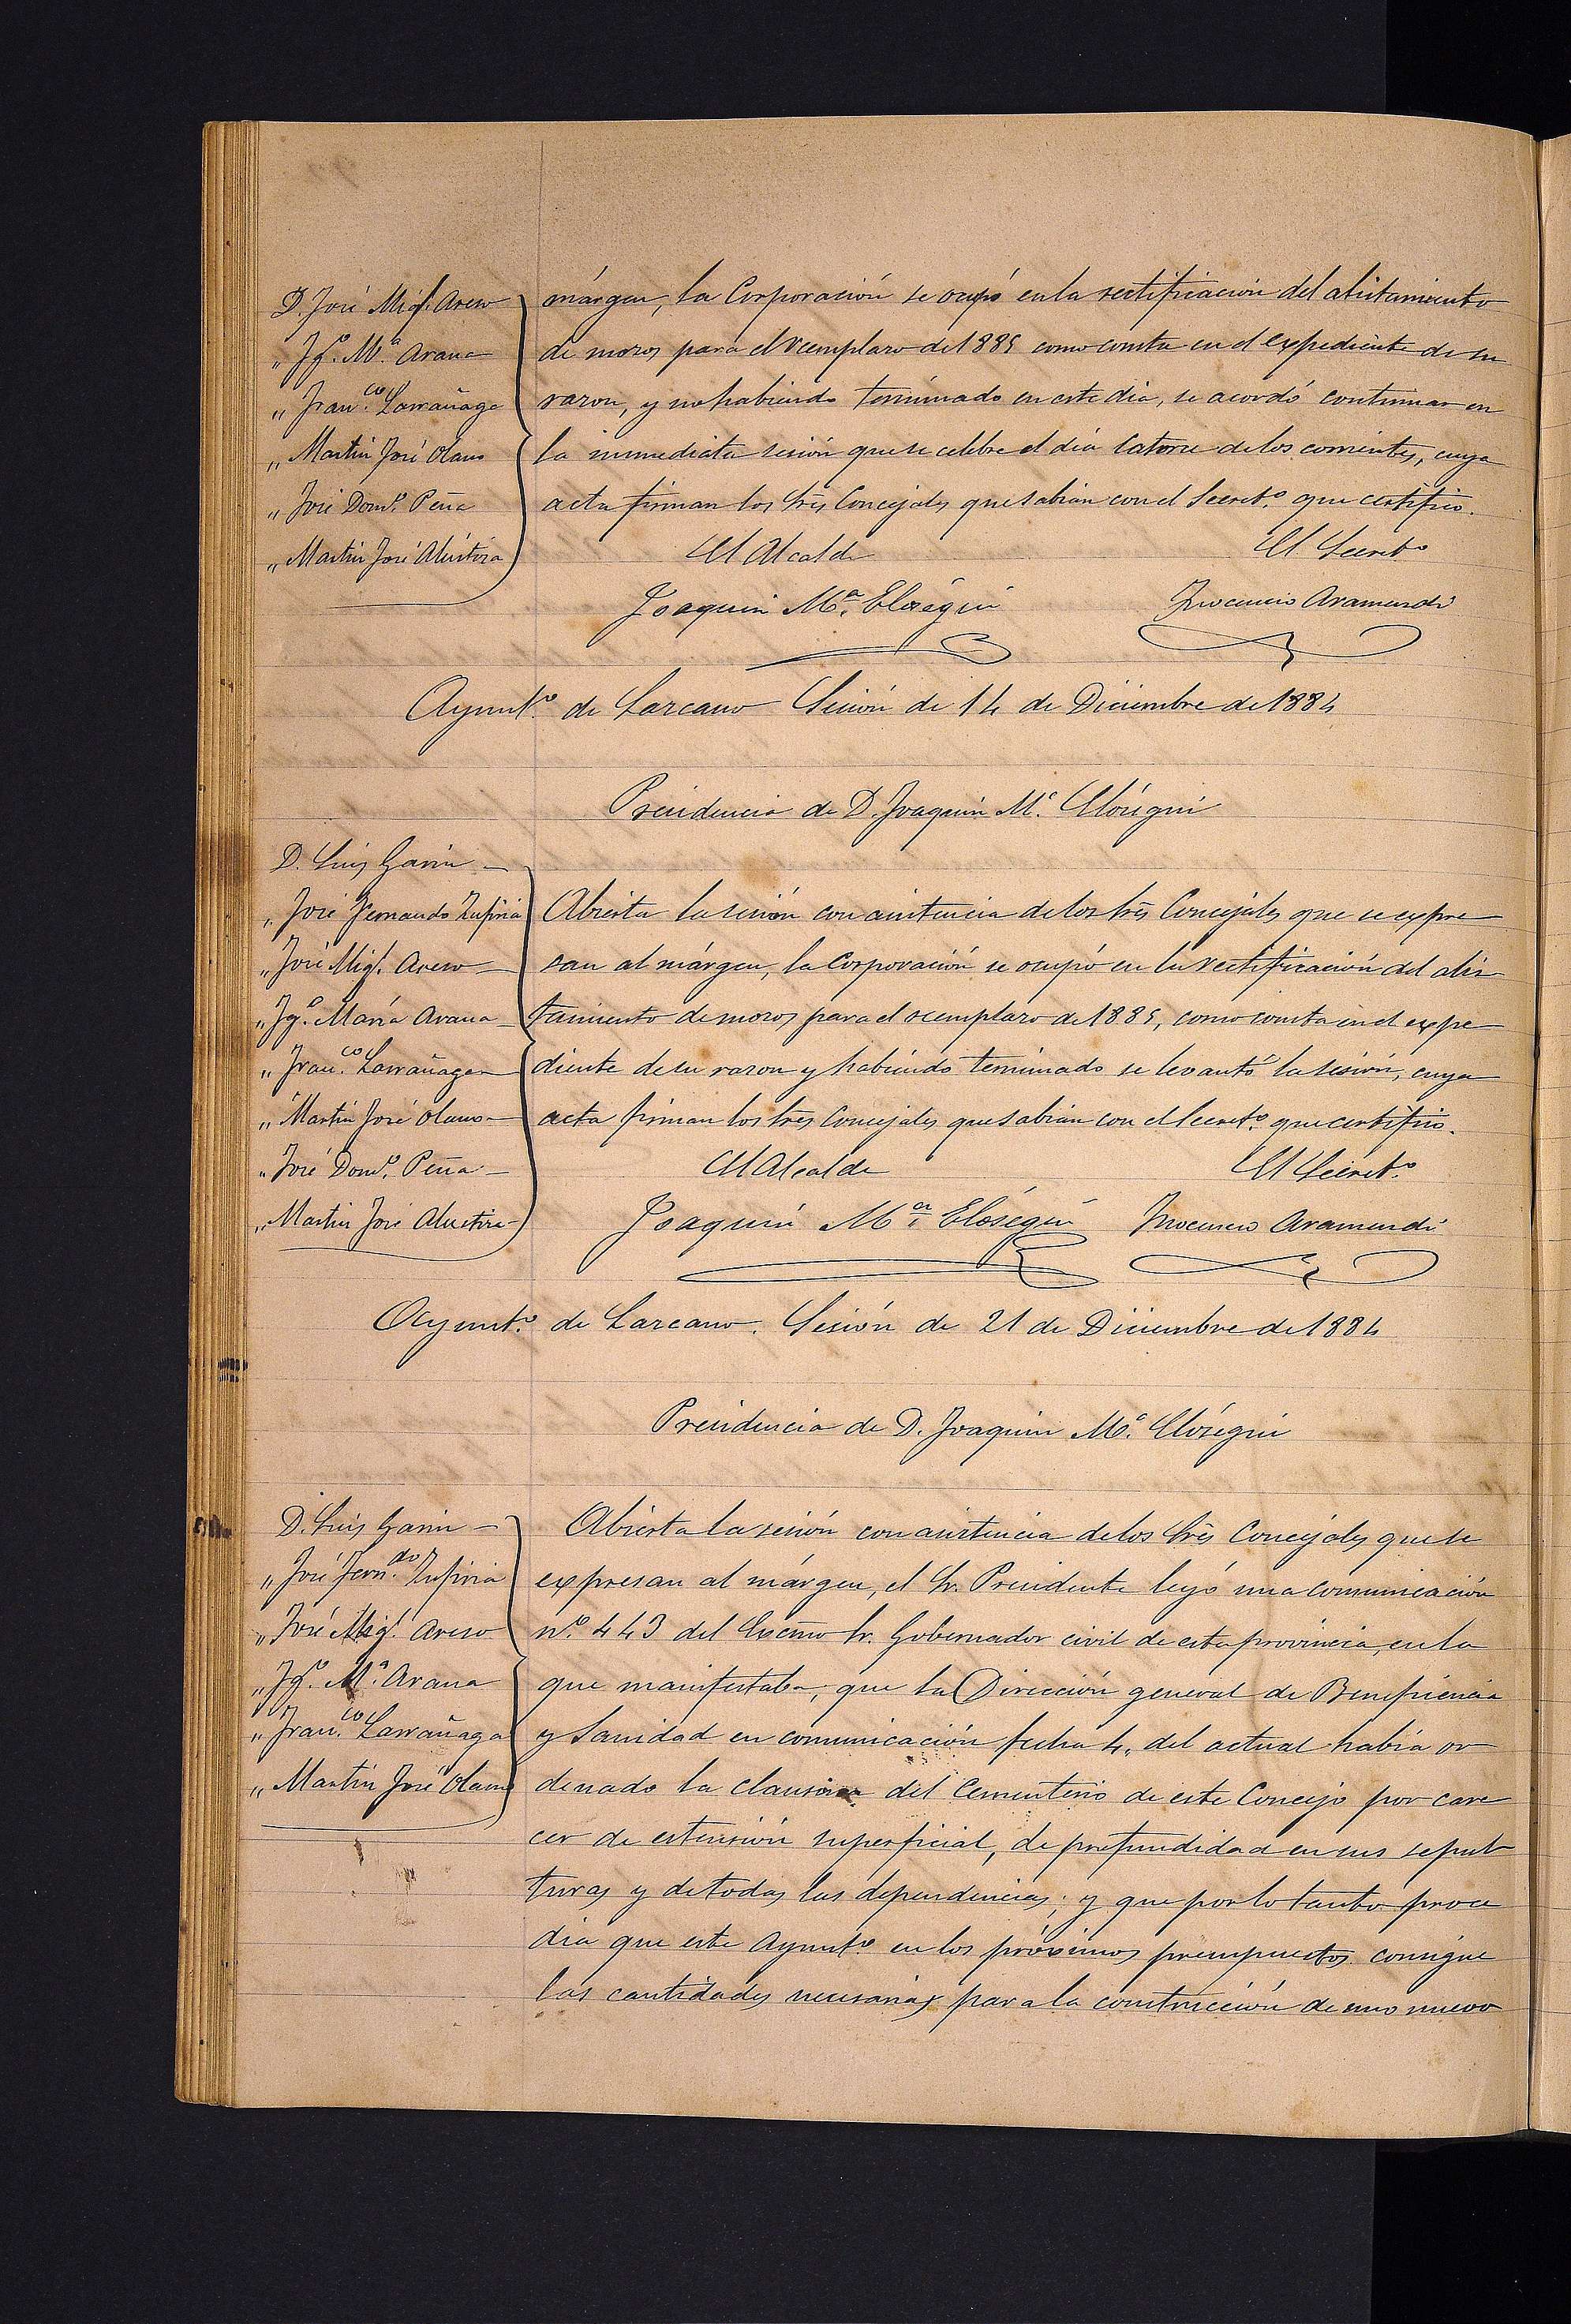 D. José Migl. Areso
„ Jgo. Ma. Arana
„ Franco. Larrañaga
„ Martin José Olano
„ José Domo. Peña
„ Martin José Alustiza
márgen, la Corporación se ocupó en la rectificación del alistamiento
de mozos para el reemplazo de 1885 como consta en el expediente de su
razon, y no habiendo terminado en este dia, se acordó continuar en
la inmediata sesión que se celebre el dia catorce de los corrientes, cuya
acta firman los Sres Concejales que sabian con el Secreto. que certifico.
El Alcalde
El Secreto
Joaquin Ma. Elósegui
Inocencio Aramendi
Ayunto. de Lazcano Sesión de 14 de Diciembre de 1884
Presidencia de D. Joaquin Ma. Elósegui
D. Luis Garin
„ José Fernando Zufiria
„ José Migl. Areso
„ Jgo. María Arana
„ Franco. Larrañaga
„ Martin José Olano
„ José Domo. Peña
„ Martin José Alustiza
Abierta la sesión con asistencia de los Sres Concejales que se expre
san al márgen, la Corporación se ocupó en la rectificación del alis
tamiento de mozos para el reemplazo de 1885, como consta en el expe
diente de su razon y habiendo terminado se levantó la sesión, cuya
acta firman los Sres Concejales que sabian con el Secreto. que certifico.
El Alcalde
El Secreto.
Joaquin Ma. Elósegui
Inocencio Aramendi
Ayunto. de Lazcano. Sesión de 21 de Diciembre de 1884
Presidencia de D. Joaquin Ma. Elósegui
D. Luis Garin
„ José Ferndo. Zufiria
„ José Migl. Areso
„ Jgo. Ma. Arana
„ Franco. Larrañaga
„ Martin José Olano
Abierta la sesión con asistencia de los Sres Concejales que se
expresan al márgen, el Sr. Presidente leyó una comunicación
no. 443 del Excmo Sr. Gobernador civil de esta provincia, en la
que manifestaba, que la Dirección general de Beneficencia
y Sanidad en comunicación fecha 4, del actual había or
denado la clausura del Cementerio de este Concejo por care
cer de estensión superficial, de profundidad en sus sepul
turas y de todas las dependencias; y que por lo tanto proce
dia que este Ayunto en los próximos presupuestos consigne
las cantidades necesarias para la construcción de uno nuevo